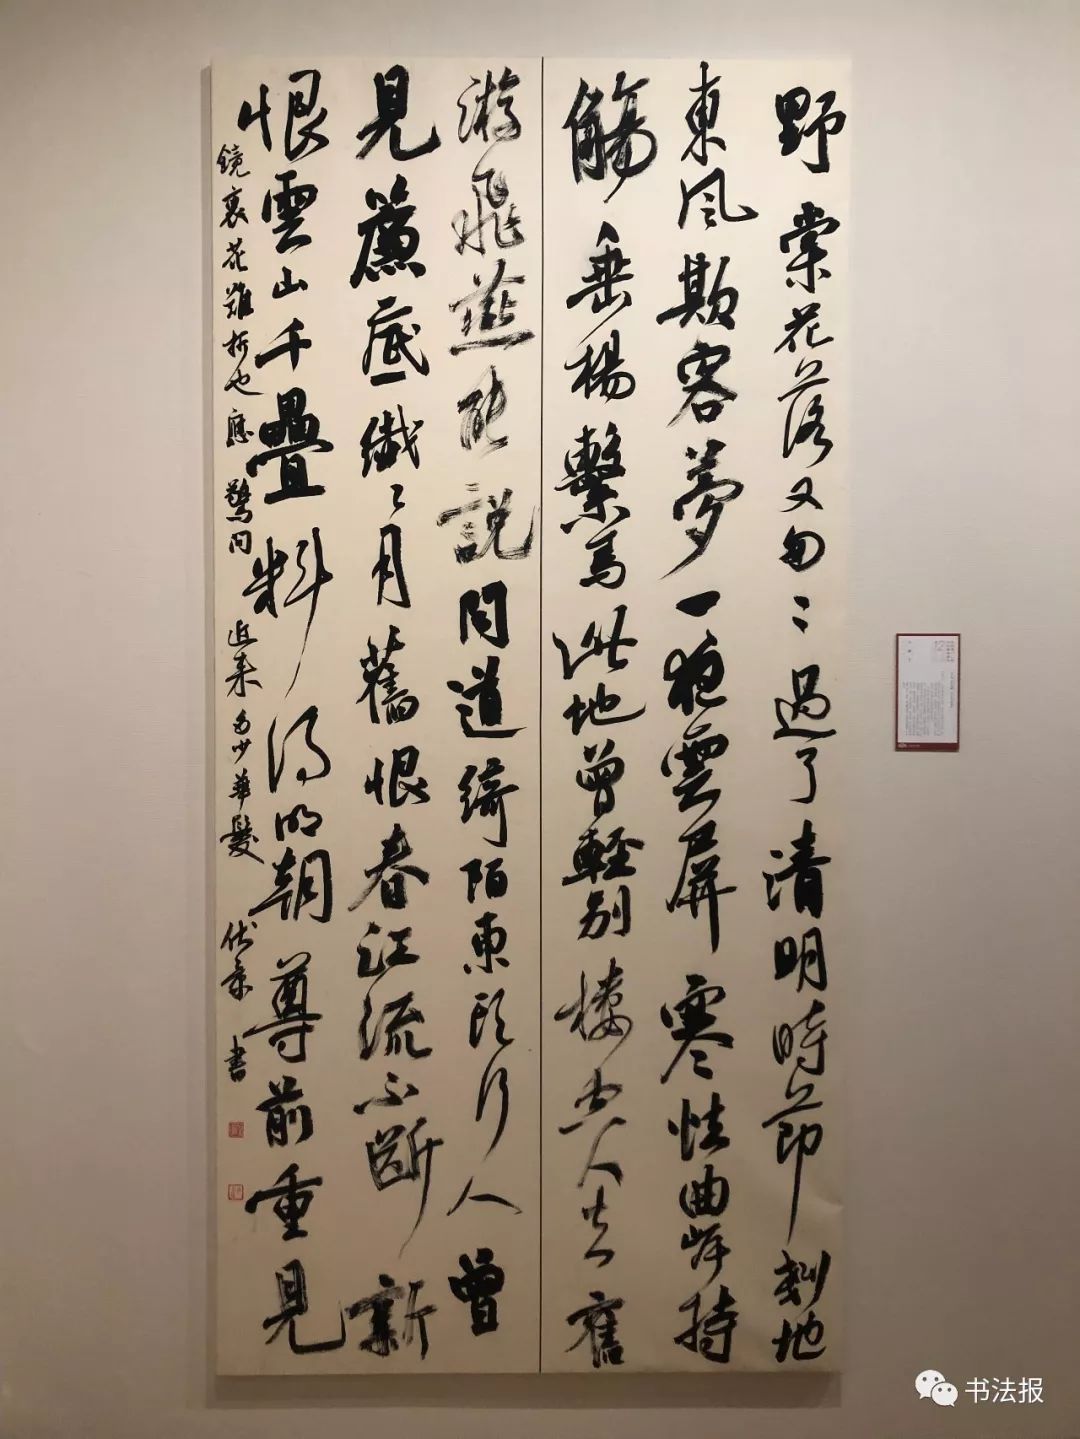 野棠花落又匆〻過了清明時節剗地
東風欺客夢一夜雲屏寒怯曲岸持
觴垂楊繫馬此地曾輕別樓空人去舊
游飛燕能說聞道綺陌東頭行人曾
見簾底纖〻月舊恨春江流不斷新
恨雲山千疊料得明朝尊前重見
鏡裏花難折也應驚問近來多少華髮
書
书法报